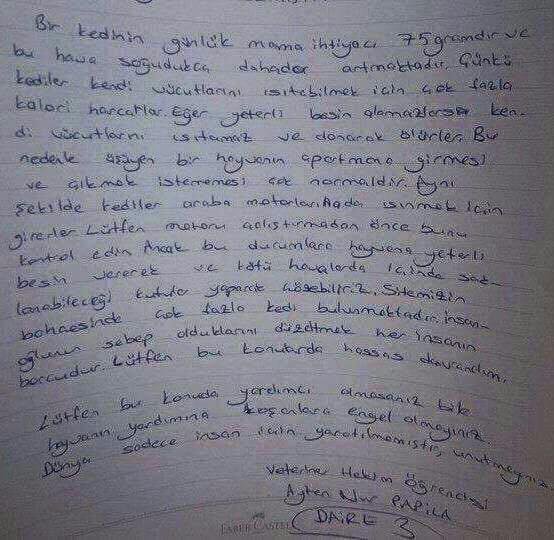 Bir kedinin günlük mama ihtiyacı 75 gramdır ve
bu hava soğudukça dahada artmaktadır. Çünkü
kediler kendi vücutlarını ısıtabilmek için çok fazla
kalori harcarlar. Eğer yeterli besin alamazlarsa ken-
di vücutlarını ısıtamaz ve donarak ölürler. Bu
nedenle üşüyen bir hayvanın apartmana girmesi
ve çıkmak istememesi çok normaldir. Aynı
şekilde kediler araba motorlarınada ısınmak için
girerler Lütfen motoru çalıştırmadan önce bunu
kontrol edin Ancak bu durumlara hayvana yeterli
besin vererek ve kötü havalarda içinde sak-
lanabileceği kutular yaparak çözebiliriz. Sitemizin
bahçesinde çok fazla kedi bulunmaktadır. insan-
oğlunun sebep olduklarını düzeltmek her insanın
borcudur. Lütfen bu konularda hassas davranalım.
Lütfen bu konuda yardımcı olmasanız bile
hayvanın yardımına koşanlara engel olmayınız.
Dünya sadece insan için yaratılmamıştır, unutmayınız.
Veteriner Hekim Öğrencisi
Ayten Nur PAPİLA
DAİRE 3
FABER-CASTELL